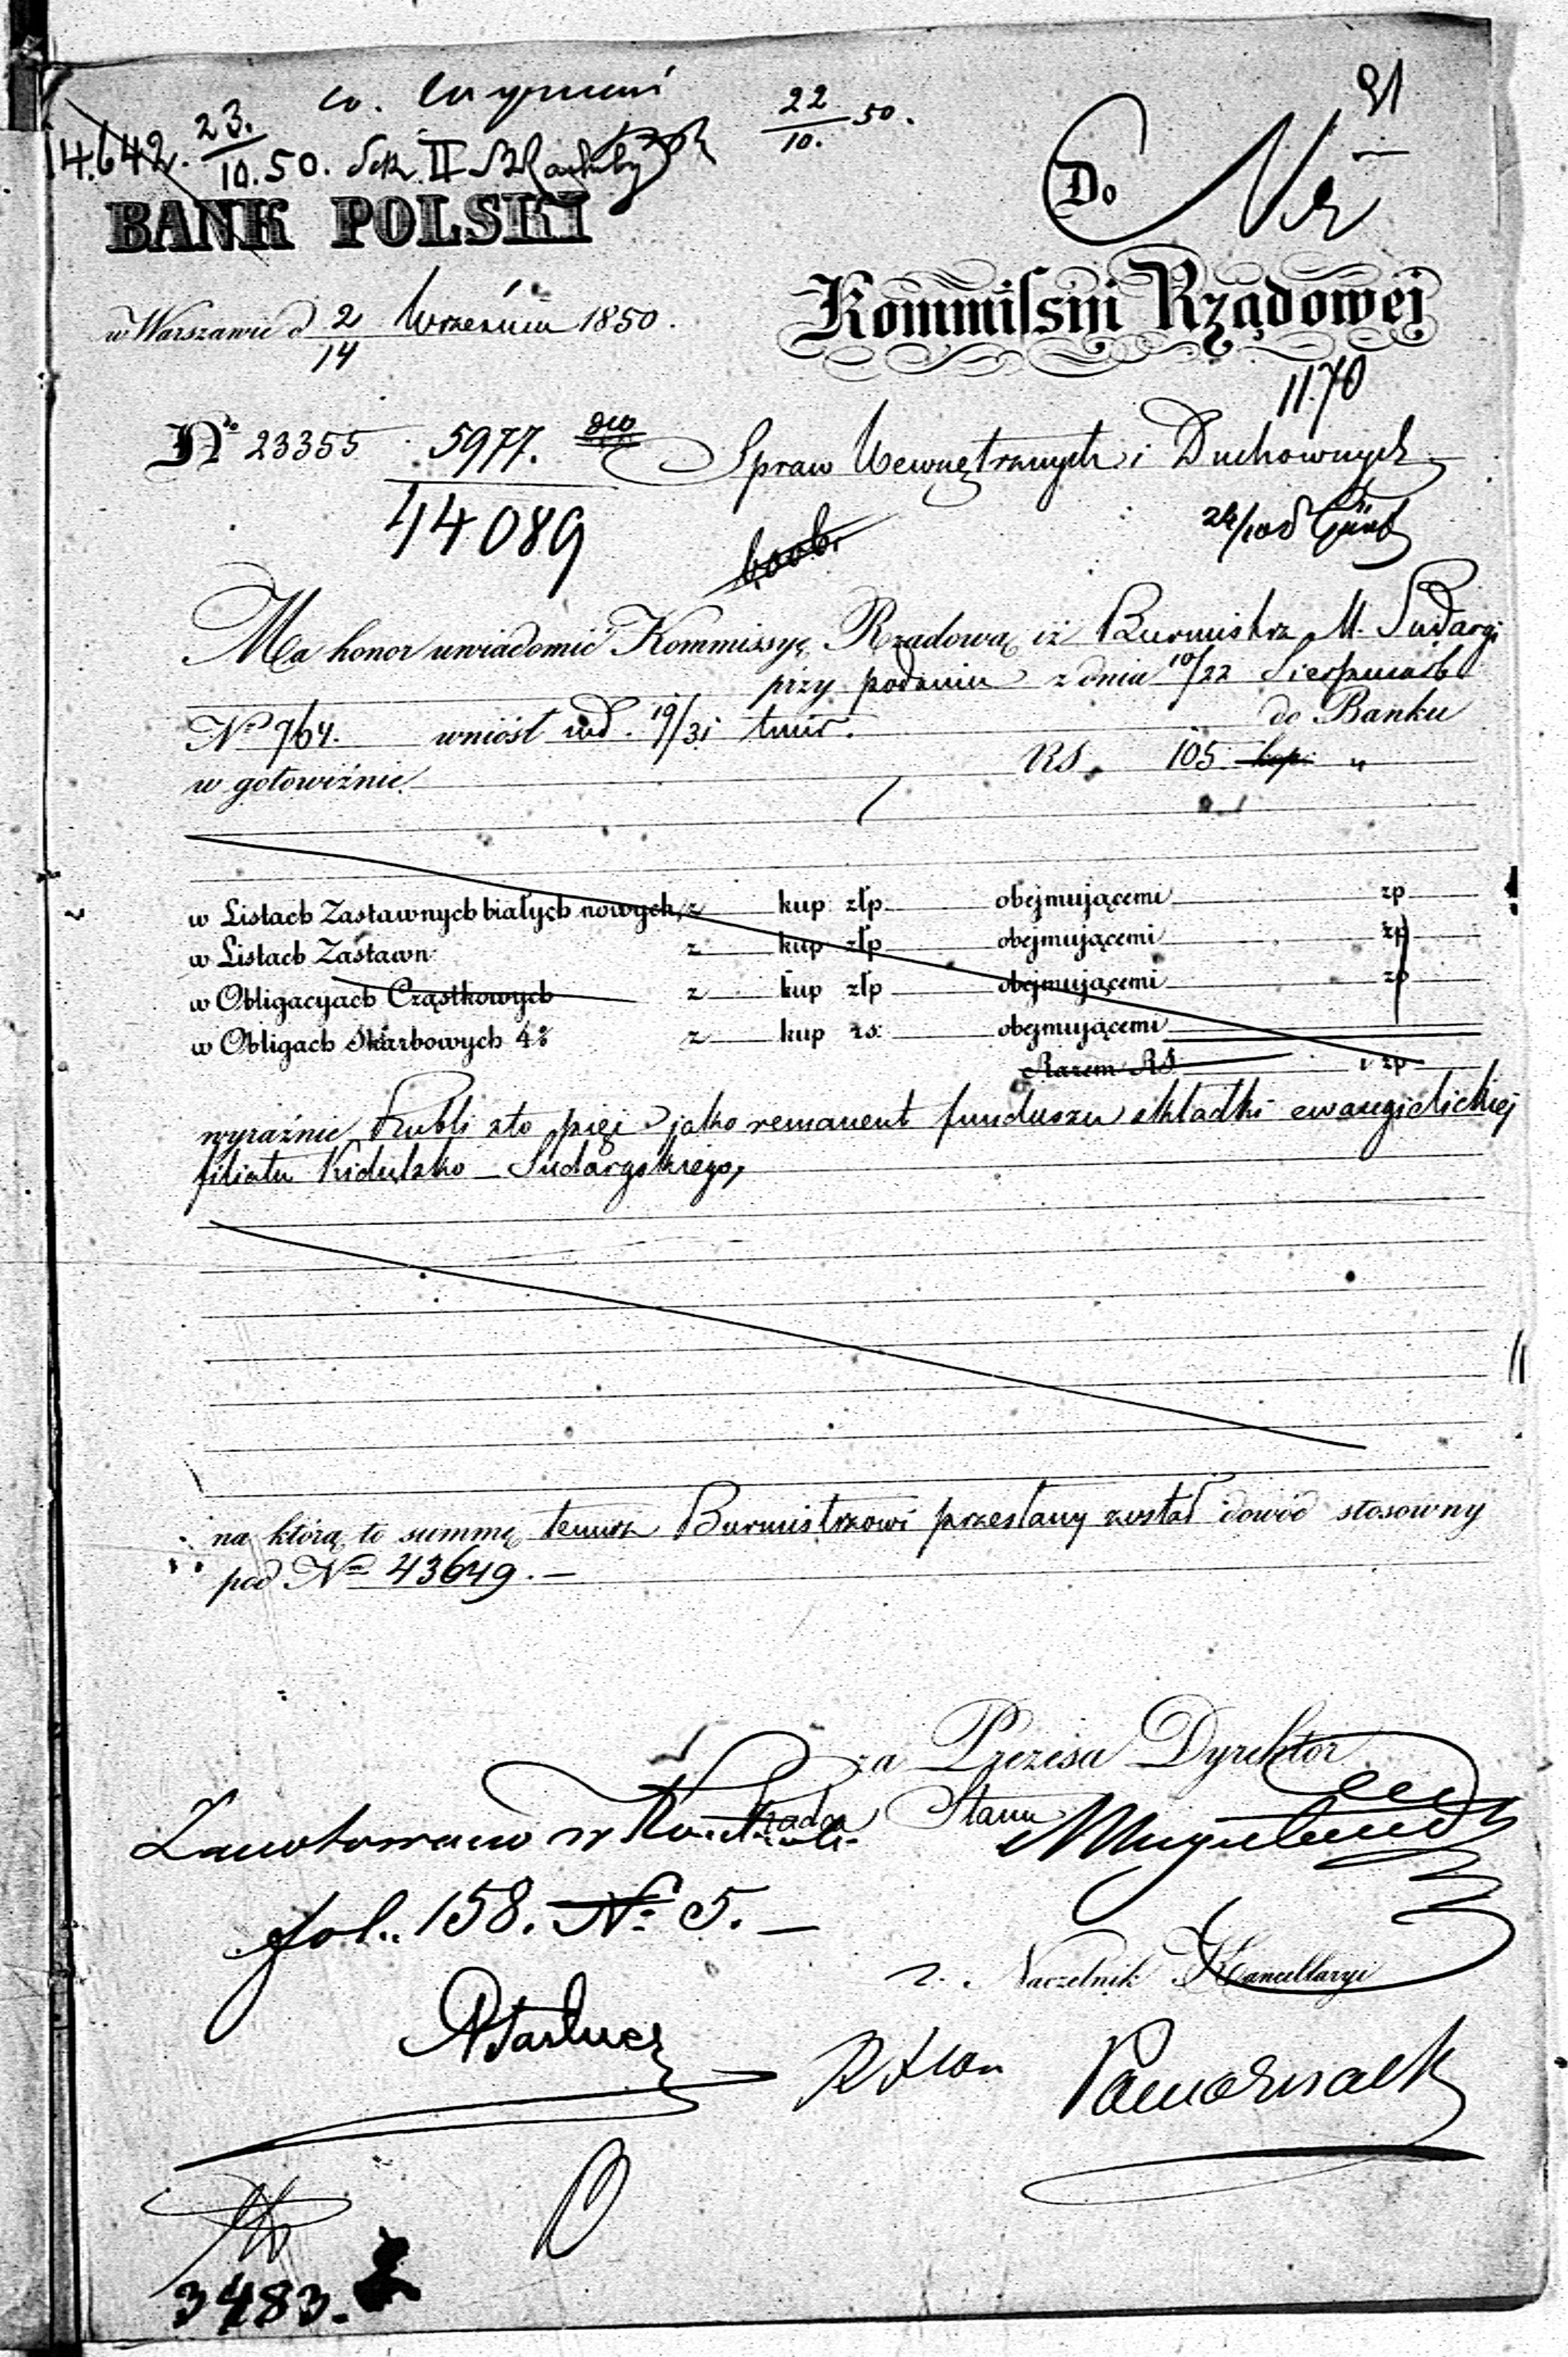 91
22/10. 50.
14.642. 23./10. 50. II
BANK POLSKI
Do
Kommissyi Rządowej
w Warszawie d 2/14 Września 1850.
1170
No 23355 5977.
44089
Spraw Wewnętrznych i Duchownych
Ma honor uwiadomić Kommissyę Rządową iż Burmistrz M. Sudargi
przy podaniu z dnia 10/22 Sierpnia rb
No 764. wniósł 19/31 tmir. do Banku
w gotowiźnie RS. 105 kop: "
w Listach Zastawnych białych nowych, z kup złp obejmującemi zp
w Listach Zastawn z kup złp obejmującemi zp
w Obligacyach Cząstkowych z kup złp obejmującemi zp
w Obligach Skarbowych 4% z kup rs: obejmującemi
Razem RS zp
wyraźnie Rubli sto pięć jako remanent funduszu składki ewangielickiej
filiału Kidulsko - Sudargskiego,
na którą to summę temuż Burmistrzowi przesłany został dowód stosowny
pod No 43649. -
za Prezesa Dyrektor
Radca Stanu
Zanotowano w
fol. 158. No 5. -
Naczelnik Kancellaryi
3483.